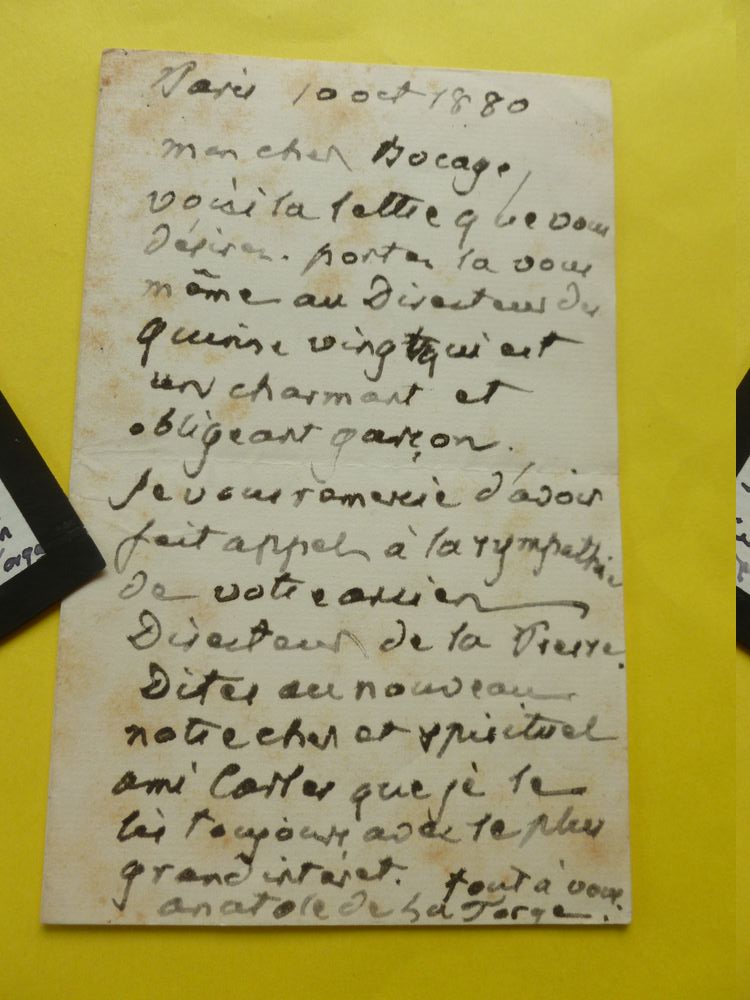 Paris 10 oct 1880
mon cher Bocage,
voici la lettre que vous
désirez. portez la vous
même au Directeur des
quinze vingt qui est
un charmant et
obligeant garçon.
Je vous remercie d'avoir
fait appel à la sympathie
de votre ancien
Directeur de la Presse.
Dites au nouveau
notre cher et spirituel
ami Carles que je le
lis toujours avec le plus
grand intérêt. tout à vous
anatole de la Forge.